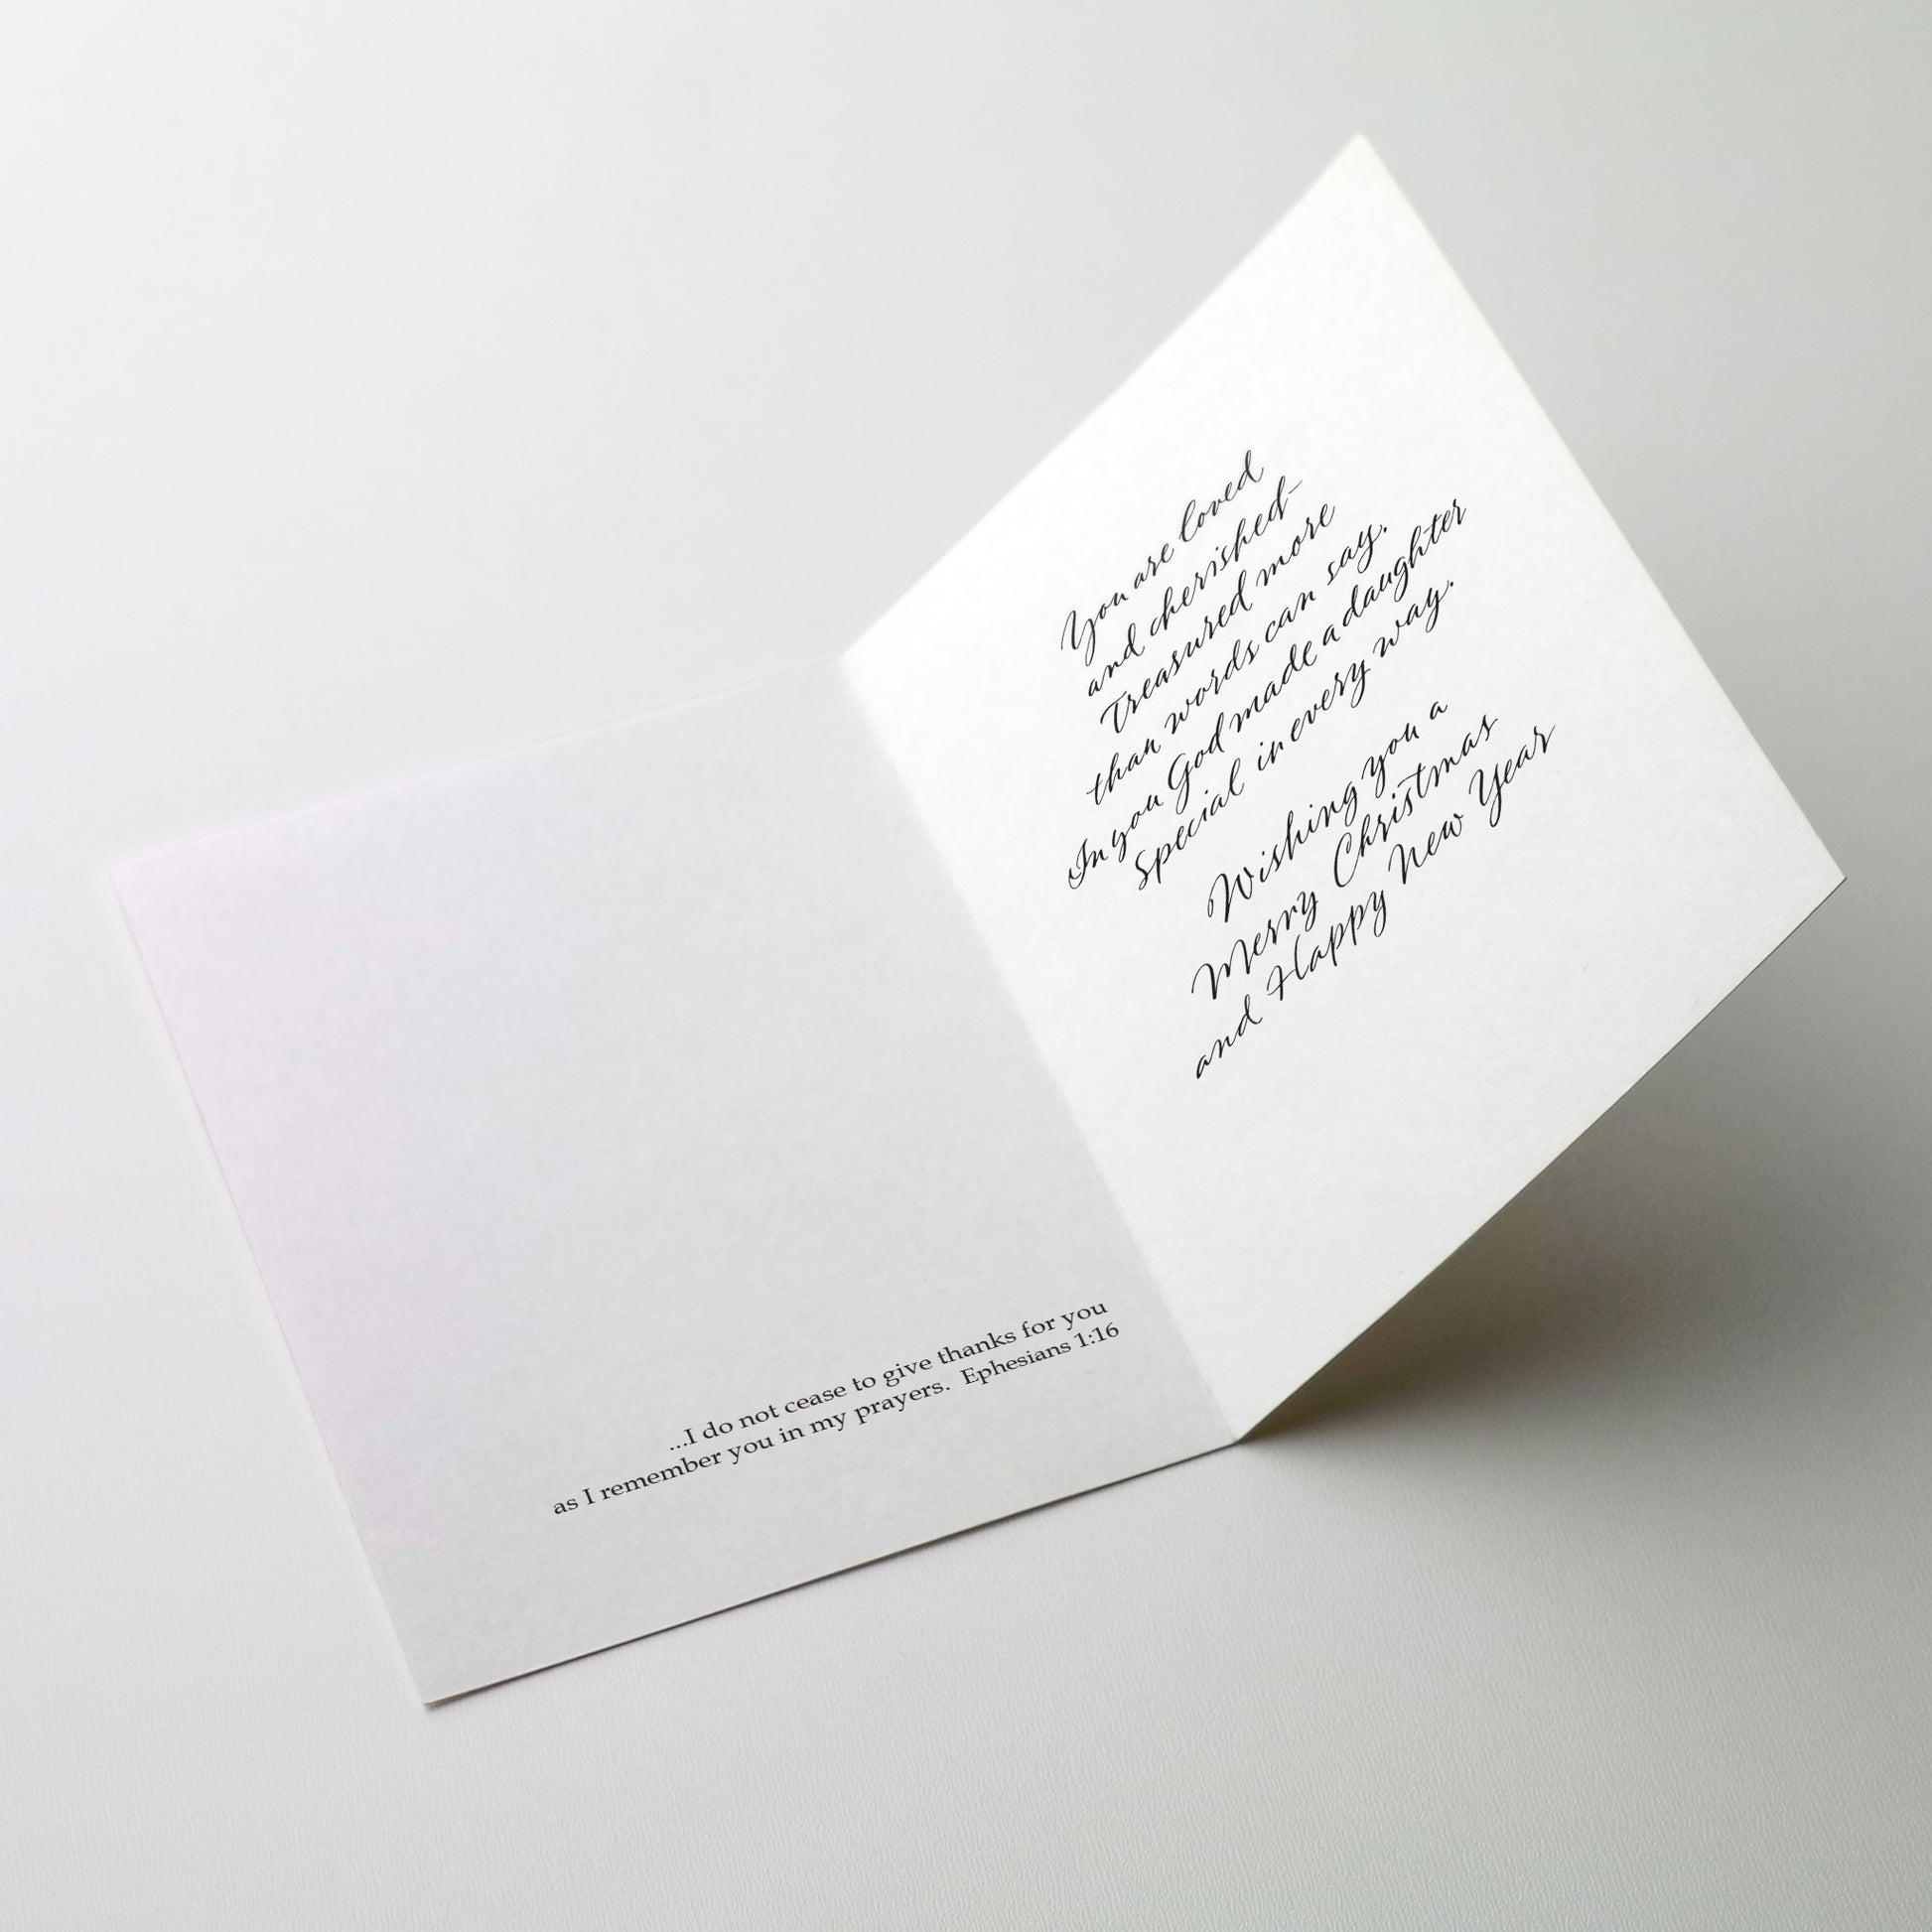 ...I do not cease to give thanks for you
as I remember you in my prayers.  Ephesians 1:16
You are loved
and cherished-
Treasured more
than words can say.
In you God made a daughter
Special in every way.
Wishing you a
Merry Christmas
and Happy New Year